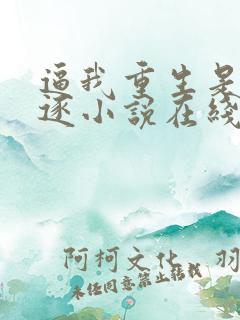 逼我重生是
逐小说在线
阿柯文化 羽
未经同意禁止转载